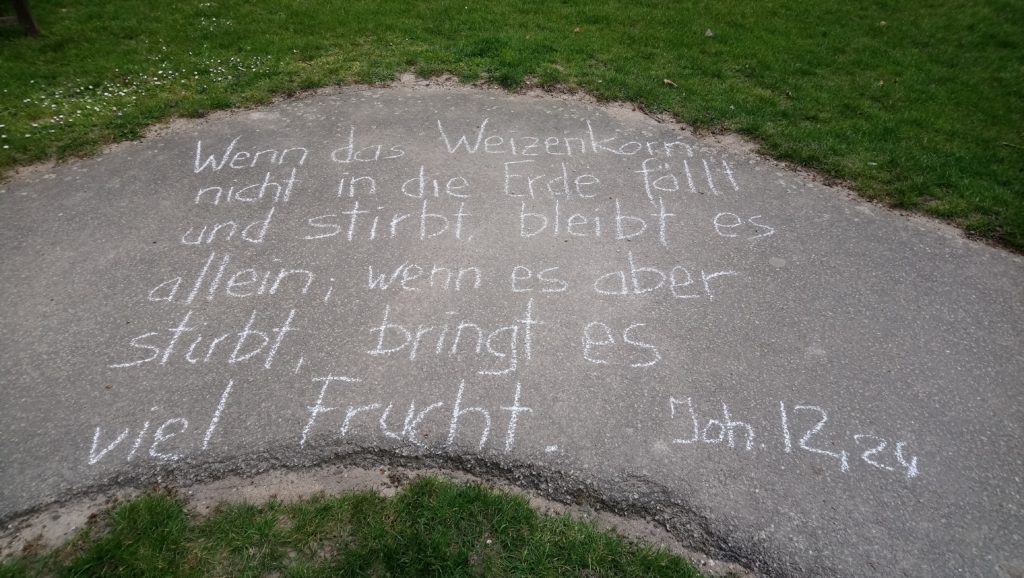 Wenn das Weizenkorn
nicht in die Erde fällt
und stirbt, bleibt es
allein; wenn es aber
stirbt, bringt es
viel Frucht. Joh. 12,24